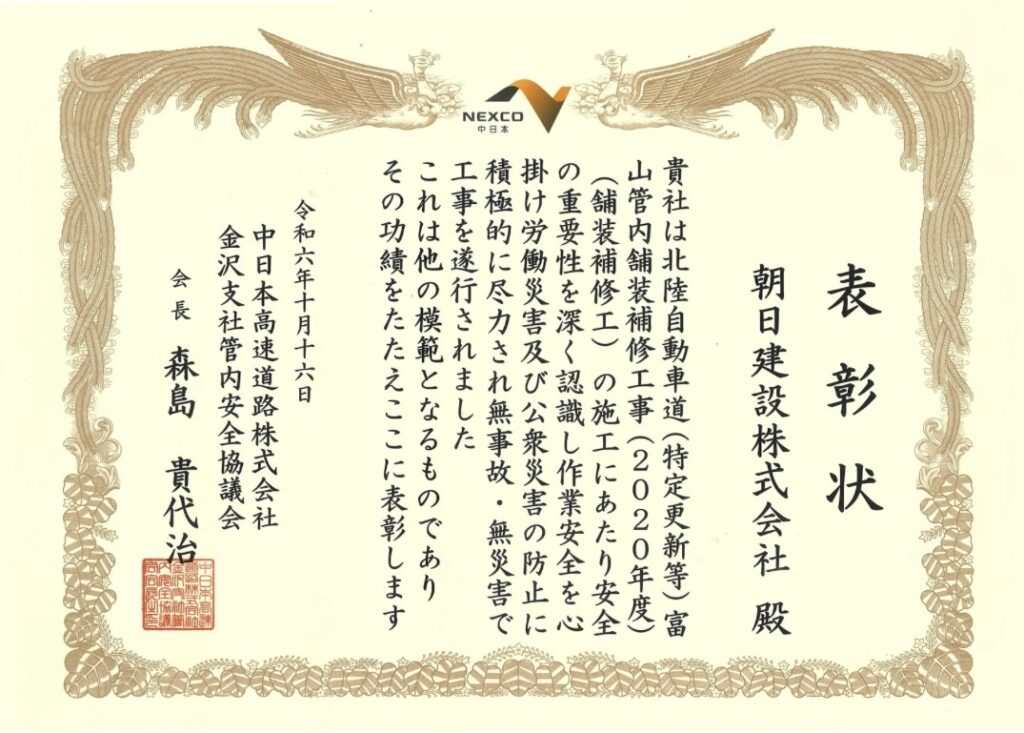 NEXCO
中日本
表彰状
朝日建設株式会社 殿
貴社は北陸自動車道(特定更新等)富
山管内舗装補修工事(2020年度)
(舗装補修工)の施工にあたり安全
の重要性を深く認識し作業安全を心
掛け労働災害及び公衆災害の防止に
積極的に尽力され無事故・無災害で
工事を遂行されました
これは他の模範となるものであり
その功績をたたえここに表彰します
令和六年十月十六日
中日本高速道路株式会社
金沢支社管内安全協議会
会長 森島 貴代治